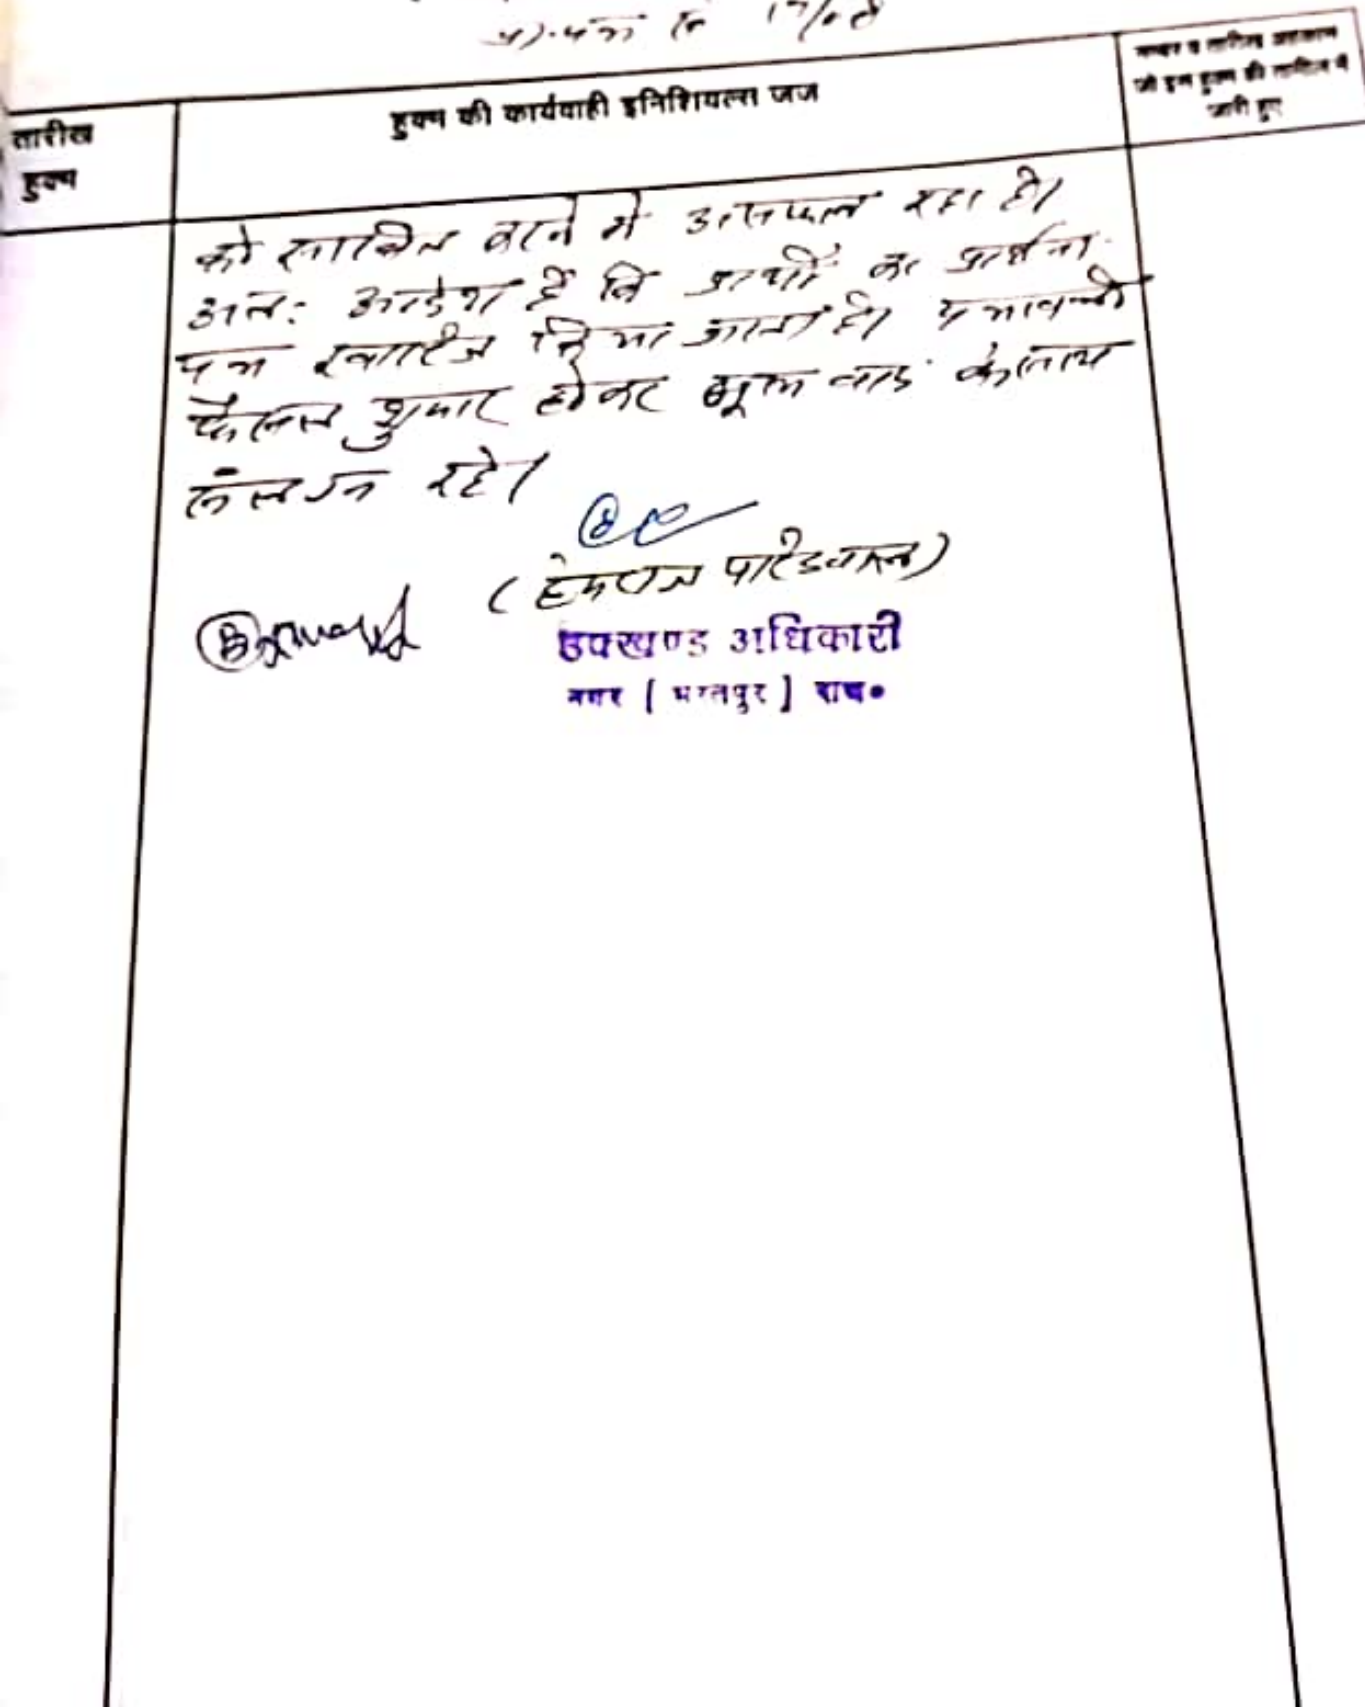 तारीख
हुक्म
हुक्म की कार्यवाही इनिशियल्स जज
नम्बर व तारीख अहकाम
जो इस हुक्म की तामील में
जारी हुए
को साबित करने में असफल रहा है।
अतः आदेश है कि प्रार्थी का प्रार्थना
पत्र खारीज किया जाता है। पत्रावली
फैसल शुमार होकर मूल वाद के साथ
संलग्न रहे।
(हेमराज परिडवाल)
उपखण्ड अधिकारी
नगर [ भरतपुर ] राज०